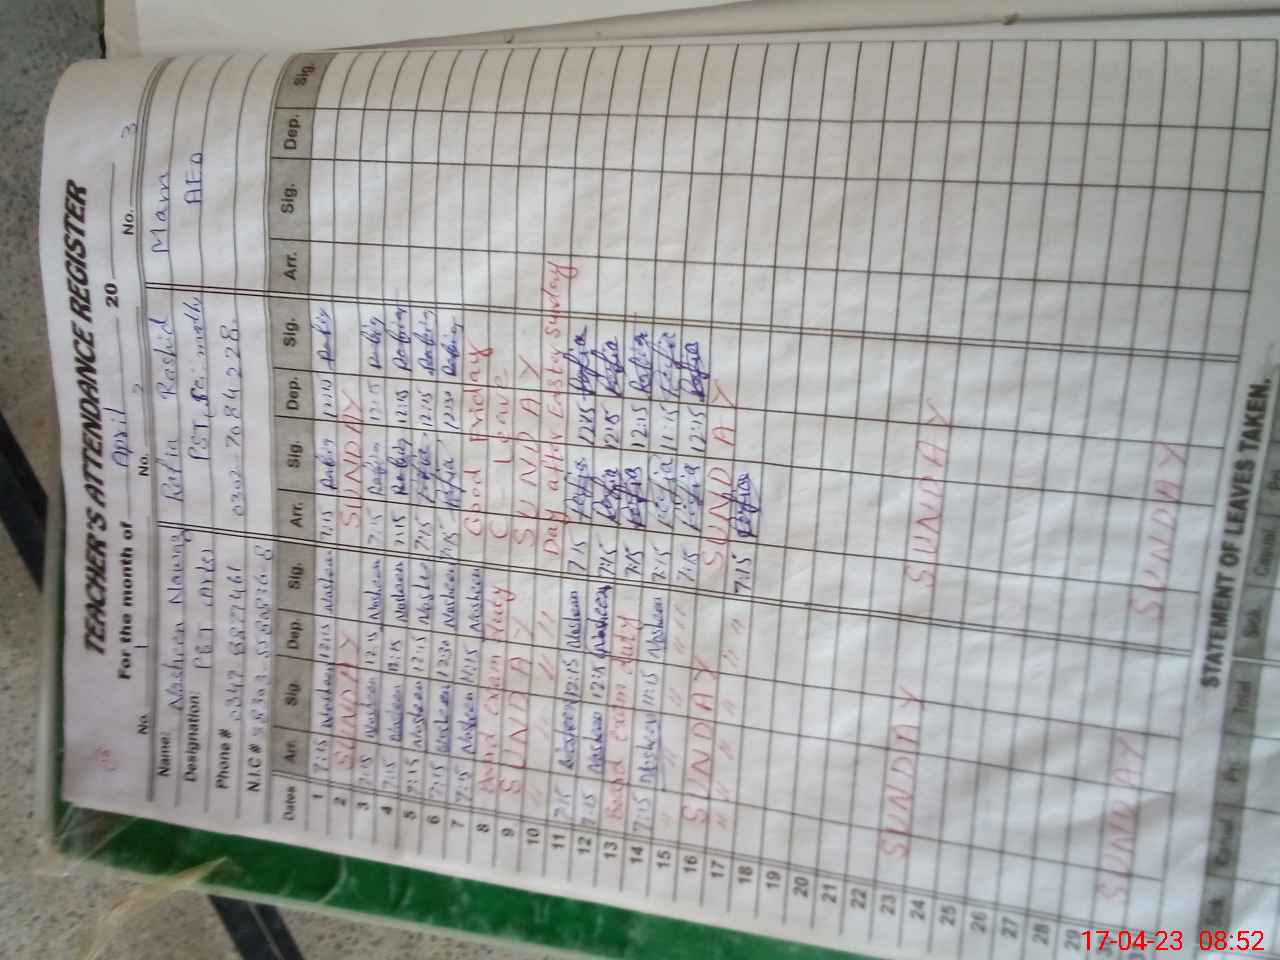 TEACHER'S ATTENDANCE REGISTER
For the month of April 20
No. 1 No. 2 No. 3
Name: Nosheen Nawaz Rafia Rashid Mam
Designation: PST Arts PST, Sci: math AEO
Phone # 0347 6877461 0302-7084228
N.I.C #
Dates Arr. Sig. Dep. Sig. Arr. Sig. Dep. Sig. Arr. Sig. Dep. Sig.
1 7:15 Nosheen 12:15 Nosheen 7:15 Rafia 12:10 Rafia
2 SUNDAY SUNDAY
3 7:15 Nosheen 12:15 Nosheen 7:15 Rafia 12:15 Rafia
4 7:15 Nosheen 12:15 Nosheen 7:15 Rafia 12:15 Rafia
5 7:15 Nosheen 12:15 Nosheen 7:15 Rafia 12:15 Rafia
6 7:15 Nosheen 12:30 Nosheen 7:15 Rafia 12:30 Rafia
7 7:15 Nosheen 11:15 Nosheen Good Friday
8 Board exam duty C Leave
9 SUNDAY SUNDAY
10 " " " " Day after Easter Sunday
11 7:15 Nosheen 12:15 Nosheen 7:15 Rafia 12:15 Rafia
12 7:15 Nosheen 12:15 Nosheen 7:15 Rafia 12:15 Rafia
13 Board exam duty 7:15 Rafia 12:15 Rafia
14 7:15 Nosheen 11:15 Nosheen 7:15 Rafia 11:15 Rafia
15 " " " " 7:15 Rafia 12:15 Rafia
16 SUNDAY SUNDAY
17 " " " " 7:15 Rafia
18
19
20
21
22
23 SUNDAY SUNDAY
24
25
26
27
28
29
30 SUNDAY SUNDAY
STATEMENT OF LEAVES TAKEN.
Sick Casual Pr. Total Sick Casual Pr.
17-04-23 08:52